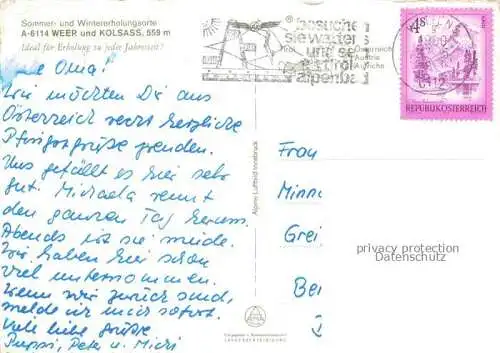 Sommer- und Wintererholungsorte
A-6114 WEER und KOLSASS, 559 m
Ideal für Erholung zu jeder Jahreszeit!
Liebe Oma!
Wir möchten Dir aus
Österreich recht herzliche
Pfingstgrüße senden.
Uns gefällt es hier sehr
gut. Michaela rennt
den ganzen Tag herum.
Abends ist sie müde.
Wir haben hier schon
viel unternommen.
Wenn wir zurück sind,
melde ich mich sofort.
Viele liebe Grüße
Puppi, Peter u. Michi
Alpine Luftbild Innsbruck
besuchen
sie wattens
und seine
Österreich
Austria
Autriche
4S
REPUBLIK ÖSTERREICH
Frau
Minna
Grei
Ber
privacy protection
Datenschutz